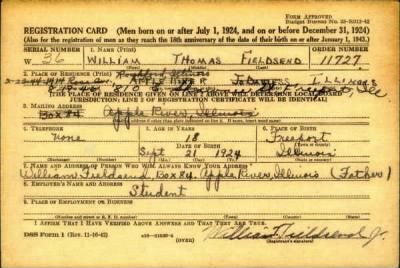 FORM APPROVED
REGISTRATION CARD (Men born on or after July 1, 1924, and on or before December 31, 1924)
(Also for the registration of men as they reach the 18th anniversary of the date of their birth on or after January 1, 1943.)
SERIAL NUMBER 1. NAME (Print) ORDER NUMBER
W 36 WILLIAM THOMAS FIELDSEND 11727
2. PLACE OF RESIDENCE (Print) Rockford Illinois
APPLE RIVER JO DAVIESS ILLINOIS
[THE PLACE OF RESIDENCE GIVEN ON LINE 2 ABOVE WILL DETERMINE LOCAL BOARD
JURISDICTION; LINE 2 OF REGISTRATION CERTIFICATE WILL BE IDENTICAL]
3. MAILING ADDRESS
Box 84 Apple River, Illinois
4. TELEPHONE 5. AGE IN YEARS 6. PLACE OF BIRTH
None 18 Freeport
DATE OF BIRTH
Sept 21 1924 Illinois
7. NAME AND ADDRESS OF PERSON WHO WILL ALWAYS KNOW YOUR ADDRESS
William Fieldsend, Box 84, Apple River, Illinois (Father)
8. EMPLOYER'S NAME AND ADDRESS
Student
9. PLACE OF EMPLOYMENT OR BUSINESS
I AFFIRM THAT I HAVE VERIFIED ABOVE ANSWERS AND THAT THEY ARE TRUE.
DSS Form 1 (Rev. 11-16-42) (OVER) William T. Fieldsend Jr.
(Registrant's signature)